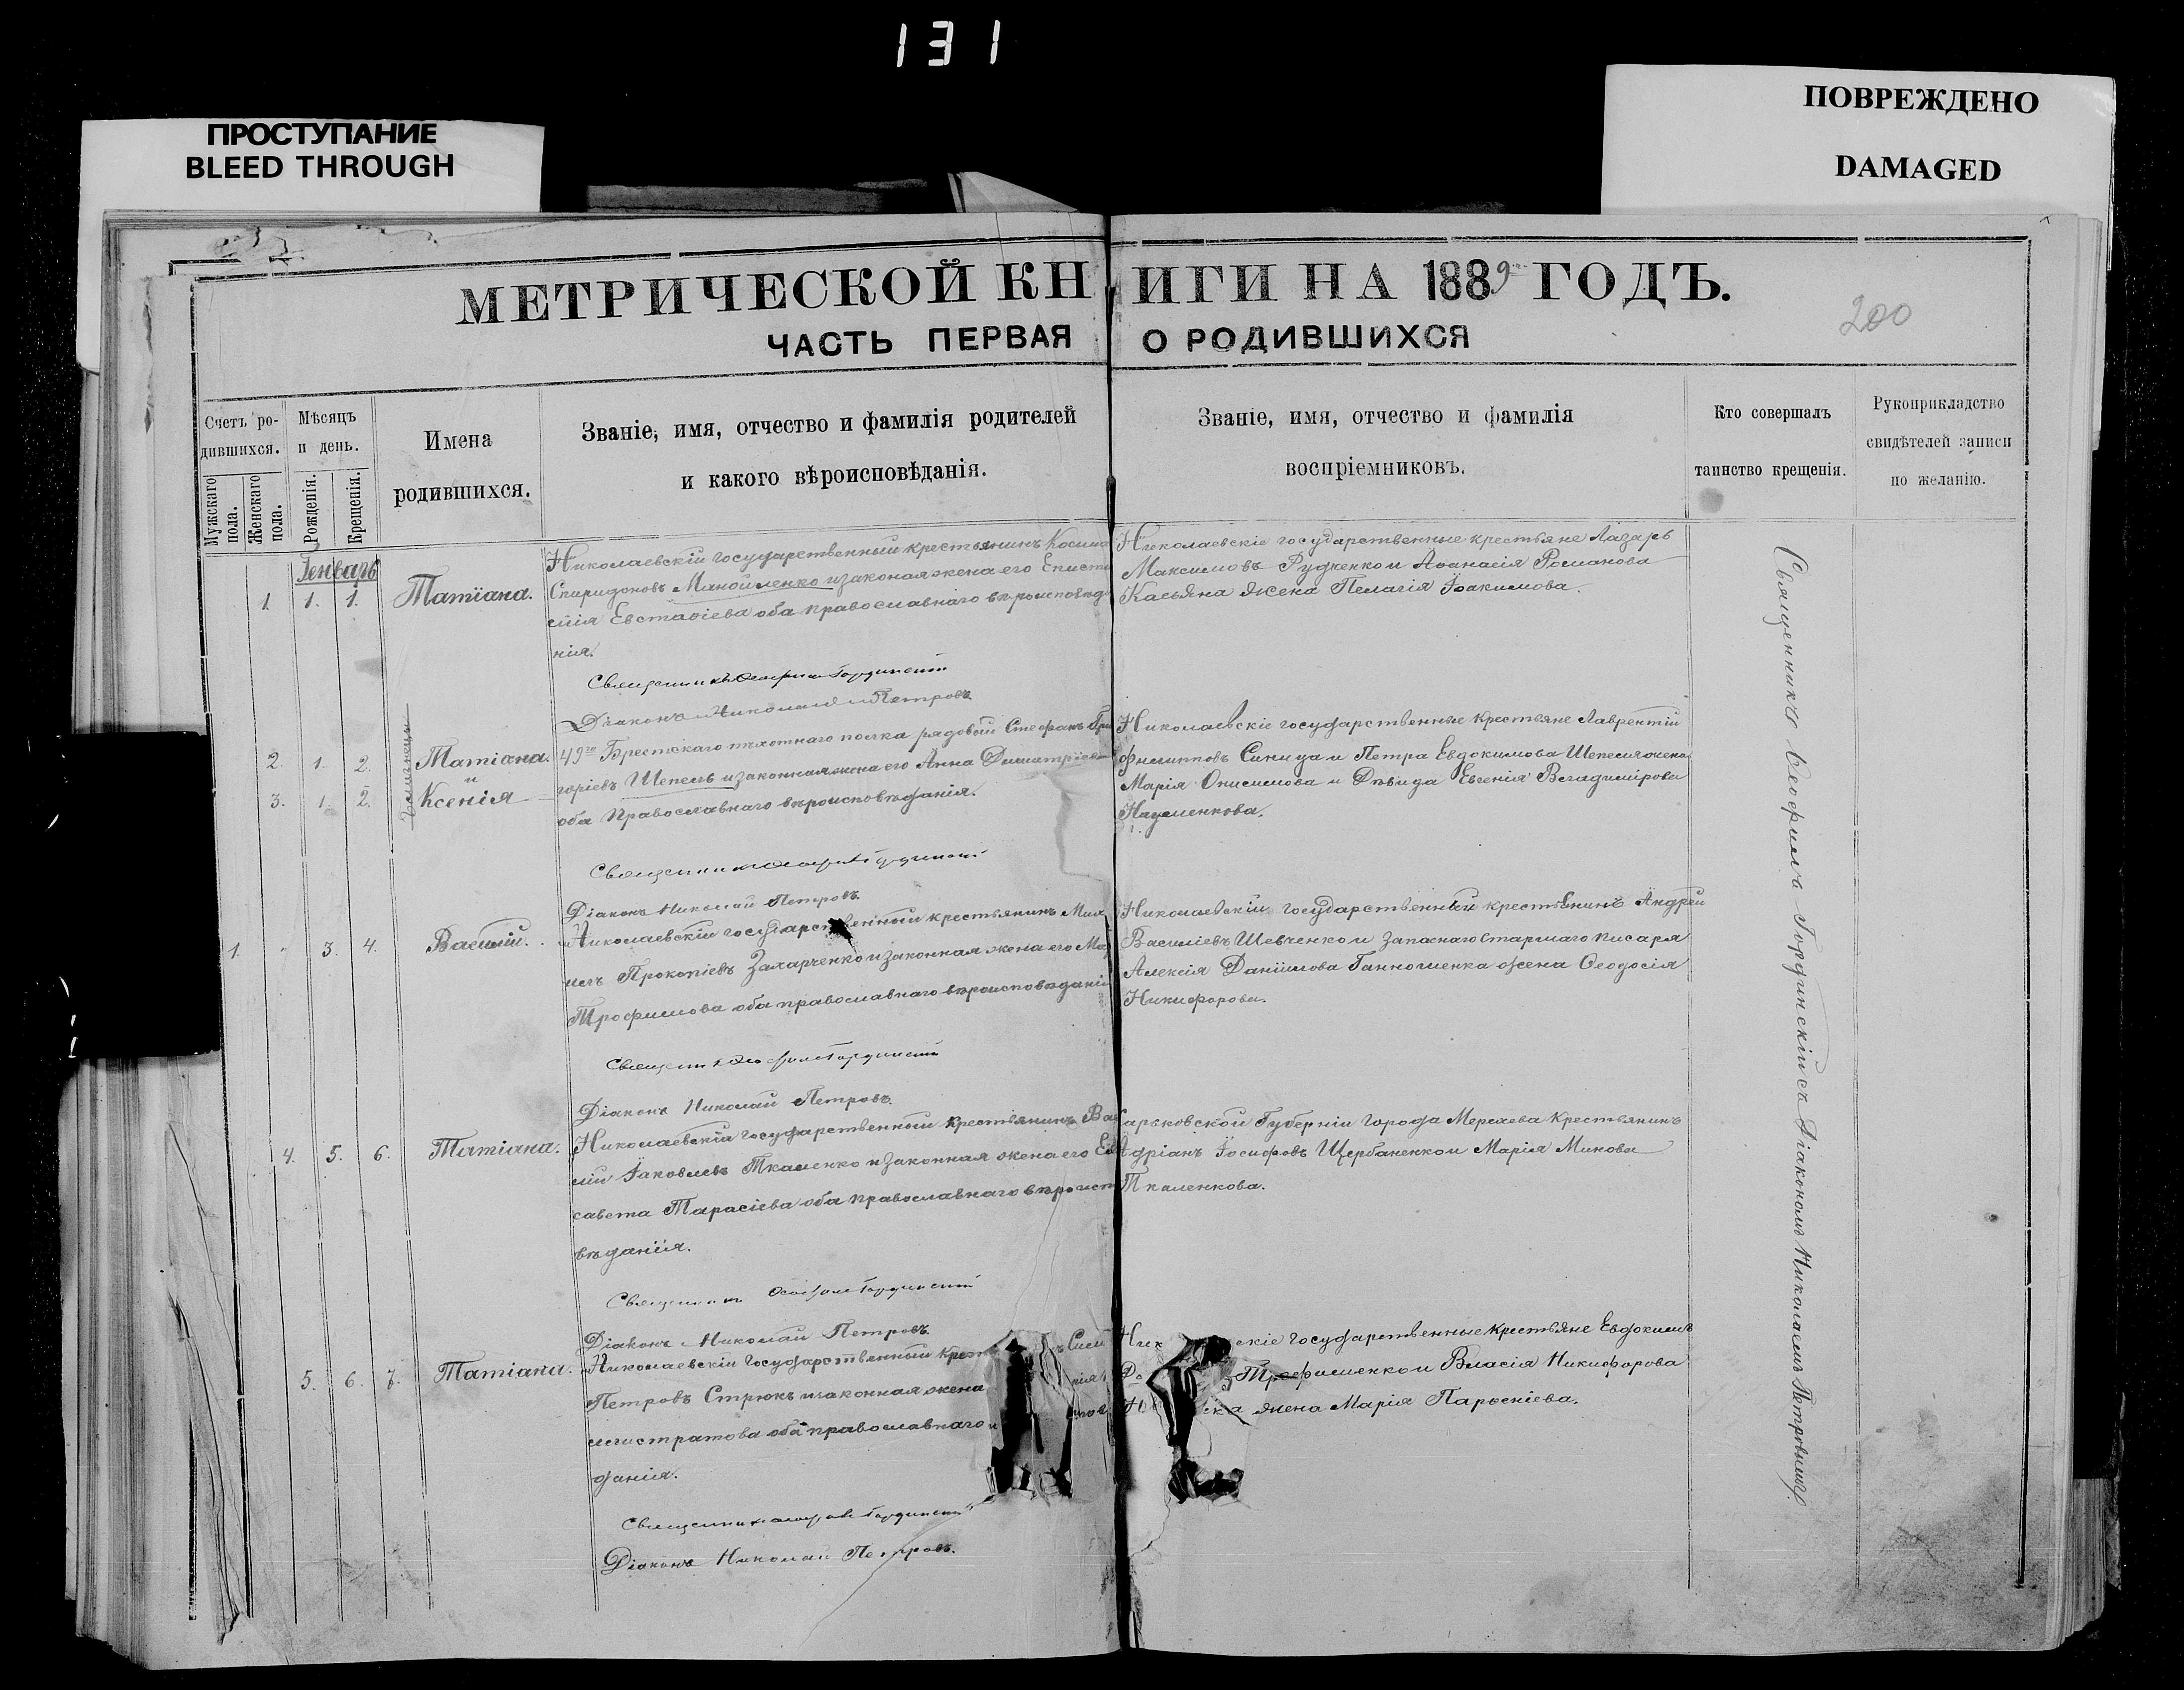 131
ПРОСТУПАНИЕ
BLEED THROUGH
ПОВРЕЖДЕНО
DAMAGED
МЕТРИЧЕСКОЙ КНИГИ НА 1889 ГОДЪ.
200
ЧАСТЬ ПЕРВАЯ О РОДИВШИХСЯ
Счетъ ро-
дившихся.
Мужскаго пола.
Женскаго пола.
Мѣсяцъ
и день.
Рожденія.
Крещенія.
Имена
родившихся.
Званіе, имя, отчество и фамилія родителей
и какого вѣроисповѣданія.
Званіе, имя, отчество и фамилія
воспріемниковъ.
Кто совершалъ
таинство крещенія.
Рукоприкладство
свидѣтелей записи
по желанію.
Генварь
1. 1. 1. Татіана.
Николаевскій государственный крестьянинъ Косьма
Спиридоновъ Манойленко и законая жена его Еписти
мія Евстафіева оба православнаго вѣроисповѣда
нія.
Священникъ Ѳеофилъ Гординскій
Діаконъ Николай Петровъ
Николаевскіе государственные крестьяне Лазарь
Максимовъ Рудченко и Аѳанасія Романова
Касьяна жена Пелагія Іоакимова.
2. 1. 2. Татіана.
и
3. 1. 2. Ксенія
Близнецы
49го Брестскаго пѣхотнаго полка рядовой Стефанъ Гри
горіевъ Шепель и законная жена его Анна Димитріева
оба Православнаго вѣроисповѣданія.
Священникъ Ѳеофилъ Гординскій
Діаконъ Николай Петровъ.
Николаевскіе государственные крестьяне Лаврентій
Филиповъ Синица и Петра Евдокимова Шепеля жена
Марія Онисимова и Дѣвица Евгенія Владимірова
Науменкова.
1. " 3. 4. Василій.
Николаевскій государственный крестьянинъ Миха
илъ Прокопіевъ Захарченко и законная жена его Ма
Трофимова оба православнаго вѣроисповѣданія
Священникъ Ѳеофилъ Гординскій
Діаконъ Николай Петровъ.
Николаевскій государственный крестьянинъ Андрей
Василіевъ Шевченко и Запаснаго Старшаго писаря
Алексія Даніилова жена Ѳеодосія
Никифорова.
4. 5. 6. Татіана.
Николаевскій государственный крестьянинъ Васи
лій Іаковлевъ Ткаленко и законная жена его Ели
савета Тарасіева оба православнаго вѣроиспо
вѣданія.
Священникъ Ѳеофилъ Гординскій
Діаконъ Николай Петровъ.
Харьковской Губерніи города Мерефева Крестьянинъ
Адріанъ Іосифовъ Щербаненко и Марія Минова
Ткаленкова.
5. 6. 7. Татіана.
Николаевскій Государственный Крест
Петровъ Стрюкъ и законная жена
Магистратова оба православнаго
данія.
Священникъ Ѳеофилъ Гординскій
Діаконъ Николай Петровъ.
скіе государственные крестьяне Евдокимъ
Трофименко и Власія Никифорова
жена Марія Парѳеніева.
Священникъ Ѳеофилъ Гординскій съ Діакономъ Николаемъ Петровымъ